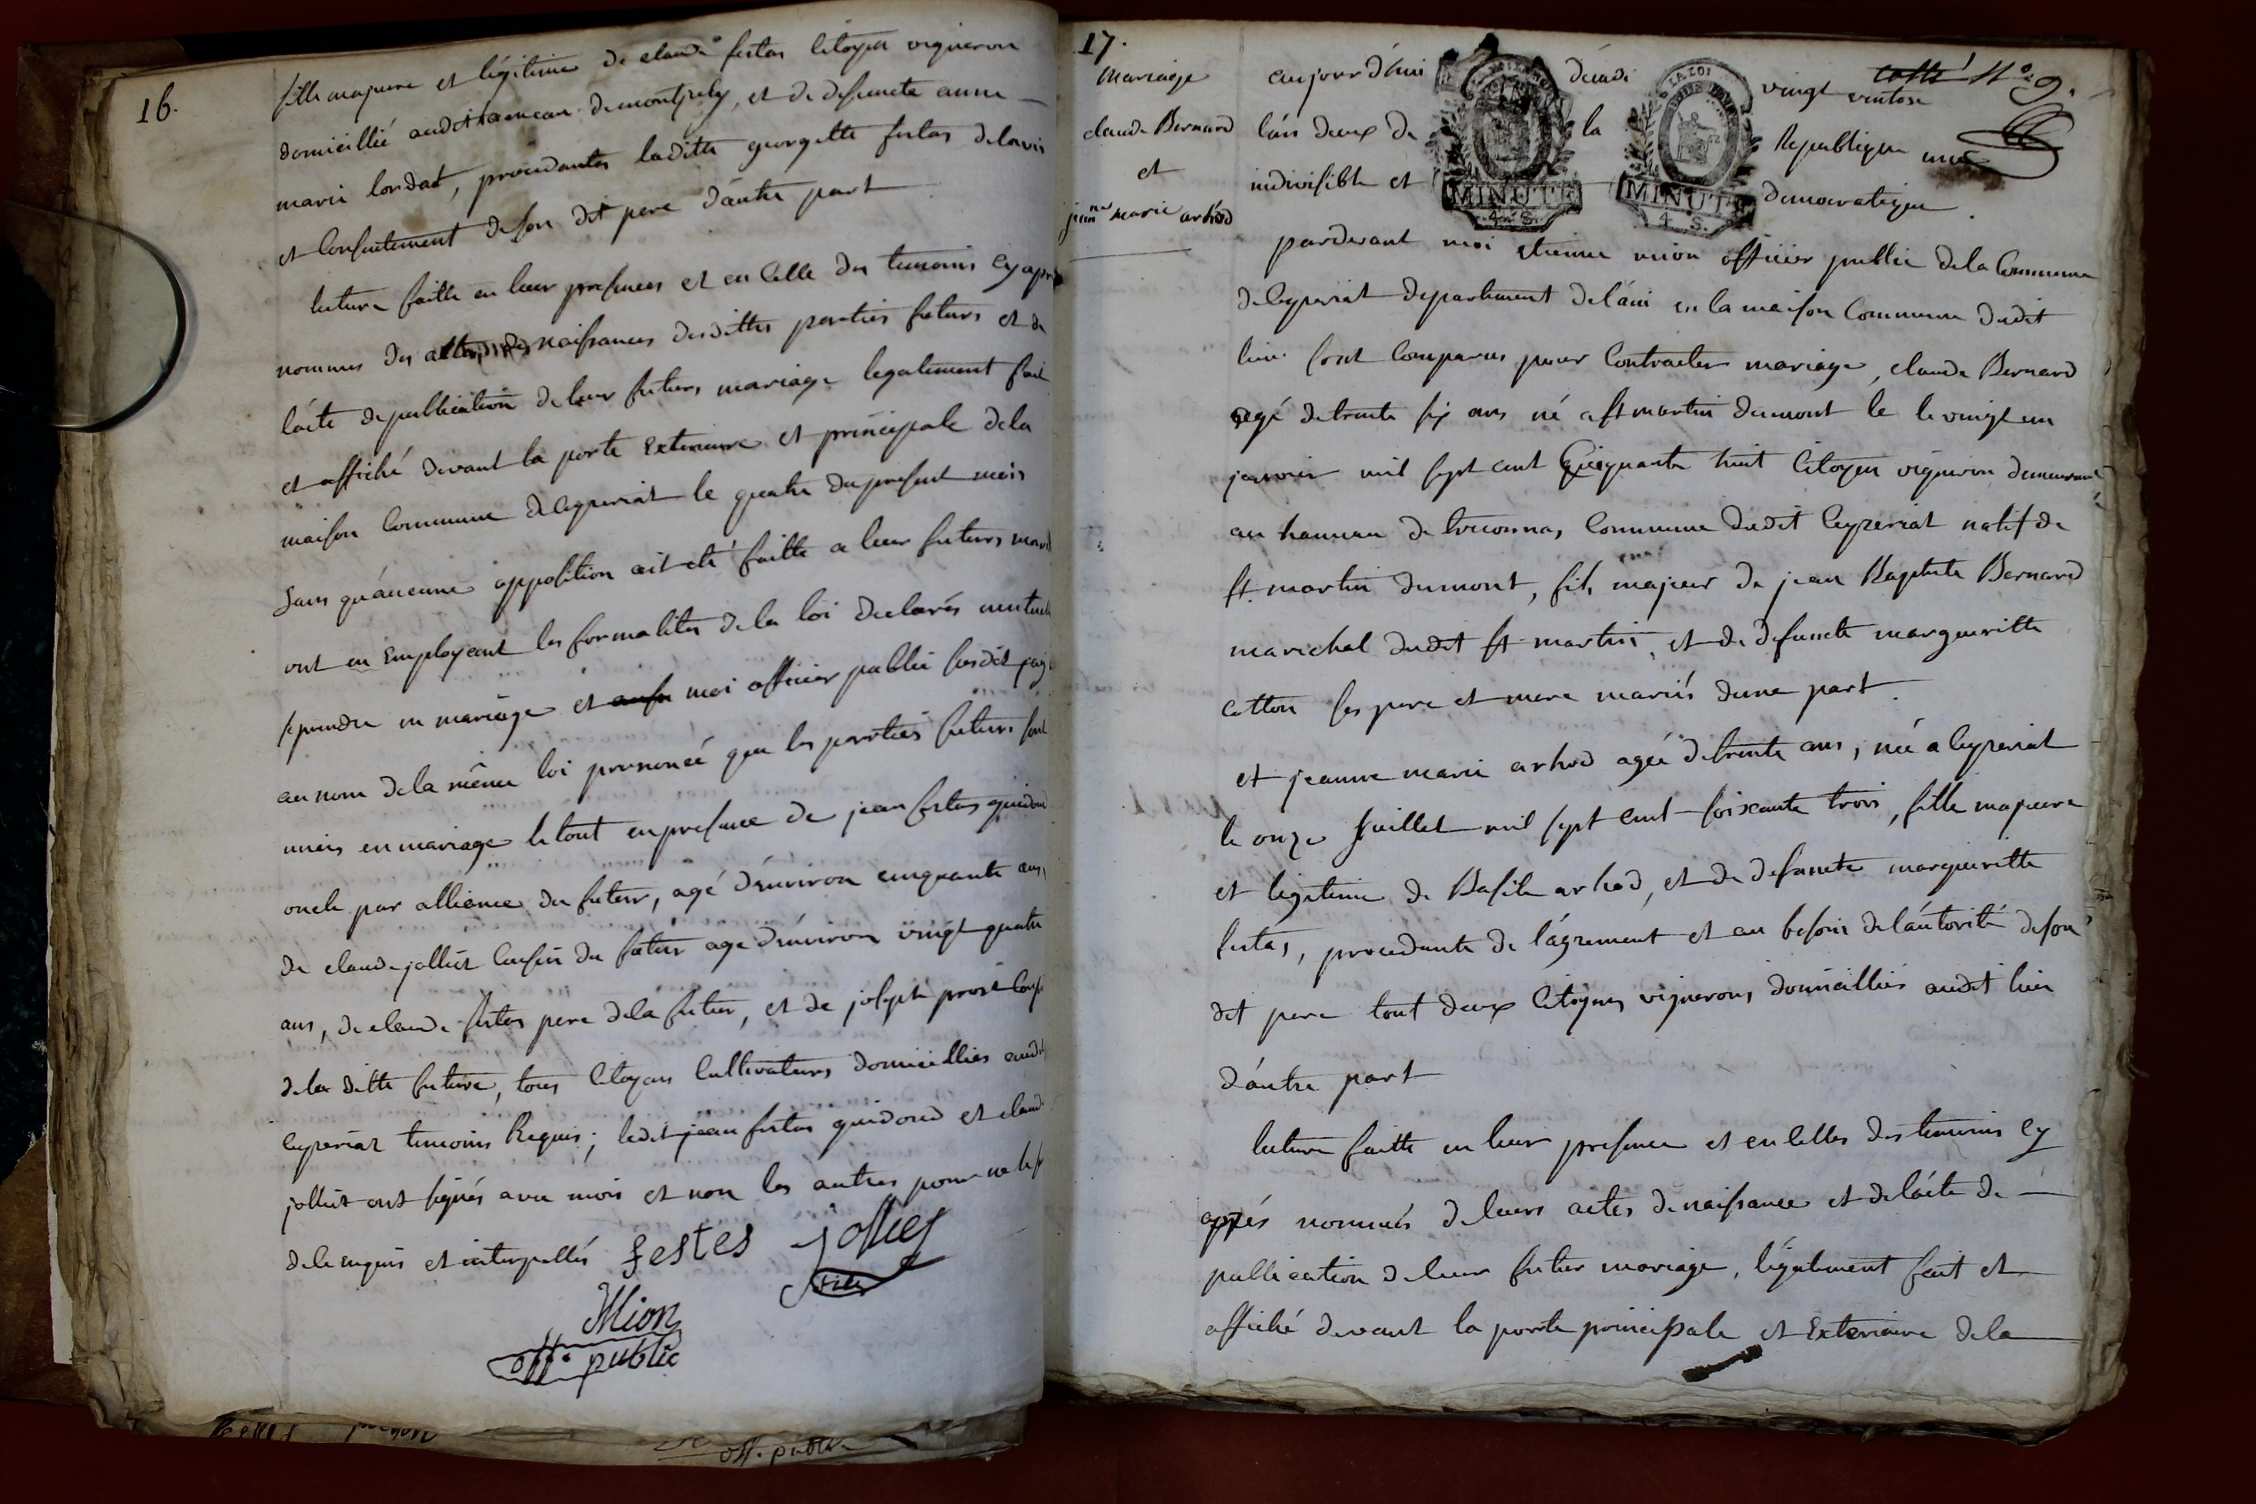 16.
fille majeure et légitime de claude festas Citoyen vigneron
domicillié audit hameau de montjuly, et de defuncte anne
marie londat, procédantes laditte georgette festas de lavis
et Consentement de son dit pere d'autre part
lecture faitte en leur presences et en Celle des temoins cy apres
nommes des actes des naissances desdittes parties futurs et de
l'acte de publication de leur futurs mariage legalement fait
et affiché devant la porte Exterieure et principale de la
maison Commune de Ceyzeriat le quatre du present mois
sans qu'aucune opposition ait eté faitte a leur futurs mari
ont en Employant les formalites de la loi declarés mutuel
se prendre en mariage et moi officier public susdit
au nom de la même loi prononcé que les parties futurs sont
unies en mariage le tout en presence de jean festas guidoud
oncle par alliance du futur, agé d'environ cinquante ans,
de claude jolliet Cousin du futur age d'environ vingt quatre
ans, de claude festas pere de la futur, et de joseph prost Cousi
de la ditte future, tous Citoyens Cultivateurs domicilliés audit
Ceyzeriat temoins Requis; ledit jean festas guidoud et claude
jolliet ont signés avec mois et non les autres pour ne le sç
de le enquis et interpellés festes jolliet
Mion
off. public
off. public
17.
Mariage
claude Bernard
et
jeanne Marie arhod
cotté N° 9.
aujourd'hui décadi vingt ventose
l'an deux de la Republique une
indivisible et democratique.
LA LOI
MINUTE
4. S.
LA LOI
MINUTE
4. S.
pardevant moi etienne mion officier public de la Commune
de Ceyzeriat departement de l'ain en la maison Commune dudit
lieu sont Comparus pour Contracter mariage, claude Bernard
agé de trente six ans né a st martin dumont le le vingt un
janvier mil sept cent Cinquante huit Citoyen vigneron demeurant
au hameau de Soconnas Commune dudit Ceyzeriat natif de
st. martin dumont, fils majeur de jean Baptiste Bernard
marechal dudit st martin, et de defuncte margueritte
cotton ses pere et mere mariés dune part.
et jeanne marie arhod agée de trente ans, née a Ceyzeriat
le onze juillet mil sept cent soixante trois, fille majeure
et legitime de Basile arhod, et de defuncte margueritte
festas, procedante de l'agrement et au besoin de l'autorité de son
dit pere tout deux Citoyens vignerons domicilliés audit lieu
d'autre part
lecture faitte en leur presence et en Celles des temoins Cy
appés nommés de leurs actes de naissance et de l'acte de
publication de leur futur mariage, légalement fait et
affiché devant la porte principale et Exterieure de la